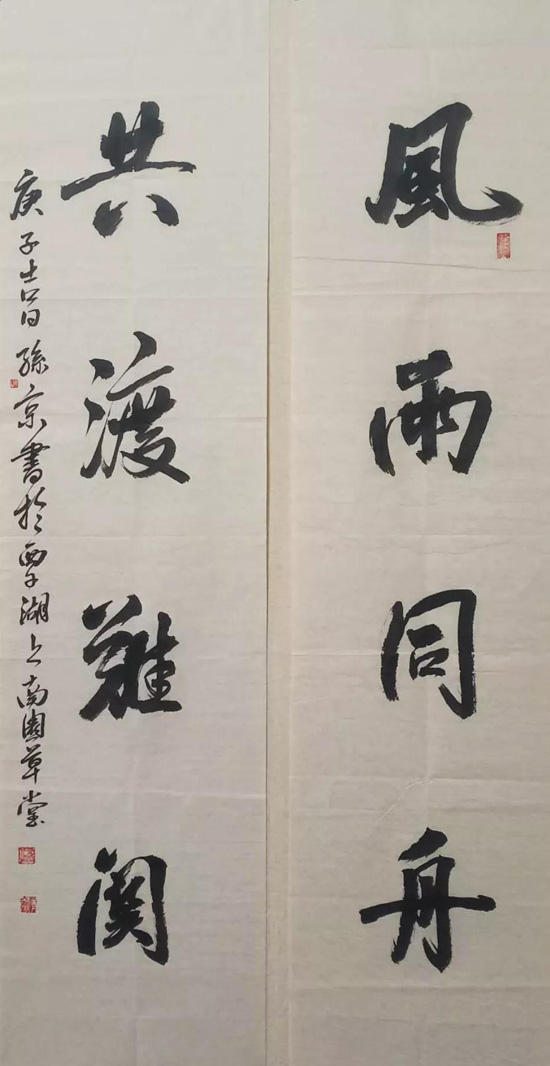 風雨同舟
共渡難關
庚子吉日孫京書於西子湖上南園草堂